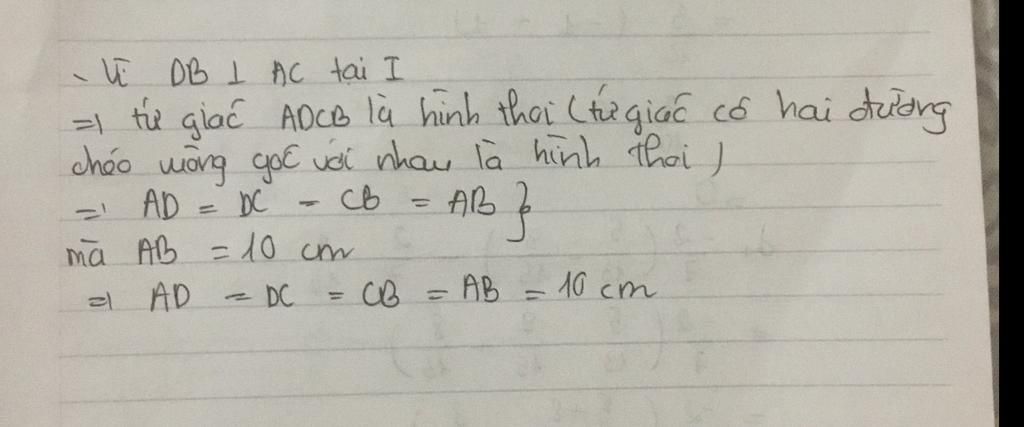 - Vì DB ⊥ AC tại I
=> tứ giác ADCB là hình thoi (tứ giác có hai đường
chéo vuông góc với nhau là hình thoi)
=> AD = DC = CB = AB }
mà AB = 10 cm
=> AD = DC = CB = AB = 10 cm